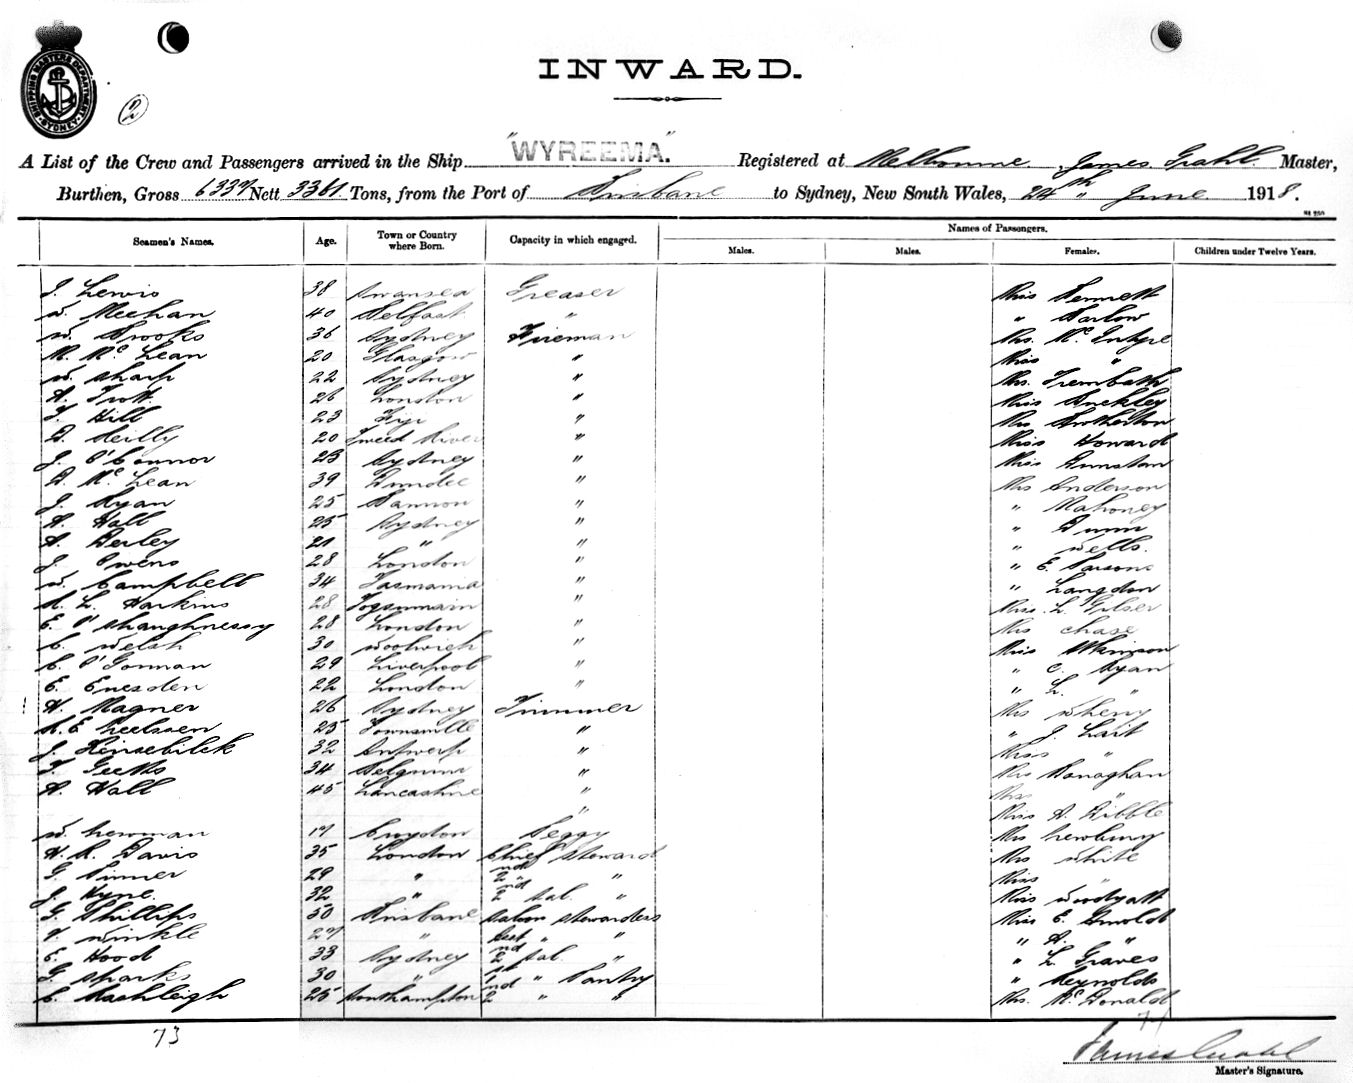 SHIPPING MASTERS DEPARTMENT SYDNEY
2
INWARD.
A List of the Crew and Passengers arrived in the Ship "WYREEMA". Registered at Melbourne, James Grahl Master,
Burthen, Gross 6337 Nett 3361 Tons, from the Port of Brisbane to Sydney, New South Wales, 24th June 1918.
Seamen's Names. Age. Town or Country where Born. Capacity in which engaged. Names of Passengers.
Males. Males. Females. Children under Twelve Years.
J. Lewis 38 Swansea Greaser Miss Bennett
W. Meehan 40 Belfast " " Barlow
W. Brooks 36 Sydney Fireman Mrs. McIntyre
R. McLean 20 Glasgow " Miss "
W. Sharp 22 Sydney " Mrs. Trembath
A. Trott 26 London " Miss Buckley
T. Hill 23 Fiji " Mrs Brotherton
D. Reilly 20 Tweed River " Miss Howard
J. O'Connor 23 Sydney " Miss Dunstan
D. McLean 39 Dundee " Mrs Anderson
J. Ryan 25 " " Mahoney
A. Hall 25 Sydney " " Dunn
A. Berley 21 " " " Wells.
J. Owens 28 London " " E. Parsons
W. Campbell 34 Tasmania " " Langdon
R. L. Harkins 28 " Miss. L. Gilser
E. O'Shaughnessy 28 London " Mrs Chase
C. Welsh 30 Woolwich " Miss Atkinson
C. O'Gorman 29 Liverpool " " C. Ryan
E. Enesden 22 London " " L. "
H. Magner 26 Sydney Trimmer Mrs Wherry
25 Townsville " " J. Lait
J. 32 Antwerp " Miss "
T. Geerts 34 Belgium " Mrs Bonaghan
A. Hall 45 Lancashire " "
" Miss A. Dibble
W. Newman 17 Croydon Peggy Mrs Newbury
H. R. Davis 35 London Chief Steward Mrs White
G. Pinner 29 " 2nd " Miss "
J. Hyne. 32 " 2nd Sal. " Miss Woodyatt
G. Phillips 50 Brisbane Saloon Stewardess Miss E. Arnoldt
V. Winkle 27 " " " " A. "
E. Hood 33 Sydney 2nd Sal. " " L. Graves
G. Sparks 30 " 1st " Pantry " Reynolds
C. Rashleigh 25 Southampton 2nd " " Mrs. McDonald
73
74
James Grahl
Master's Signature.